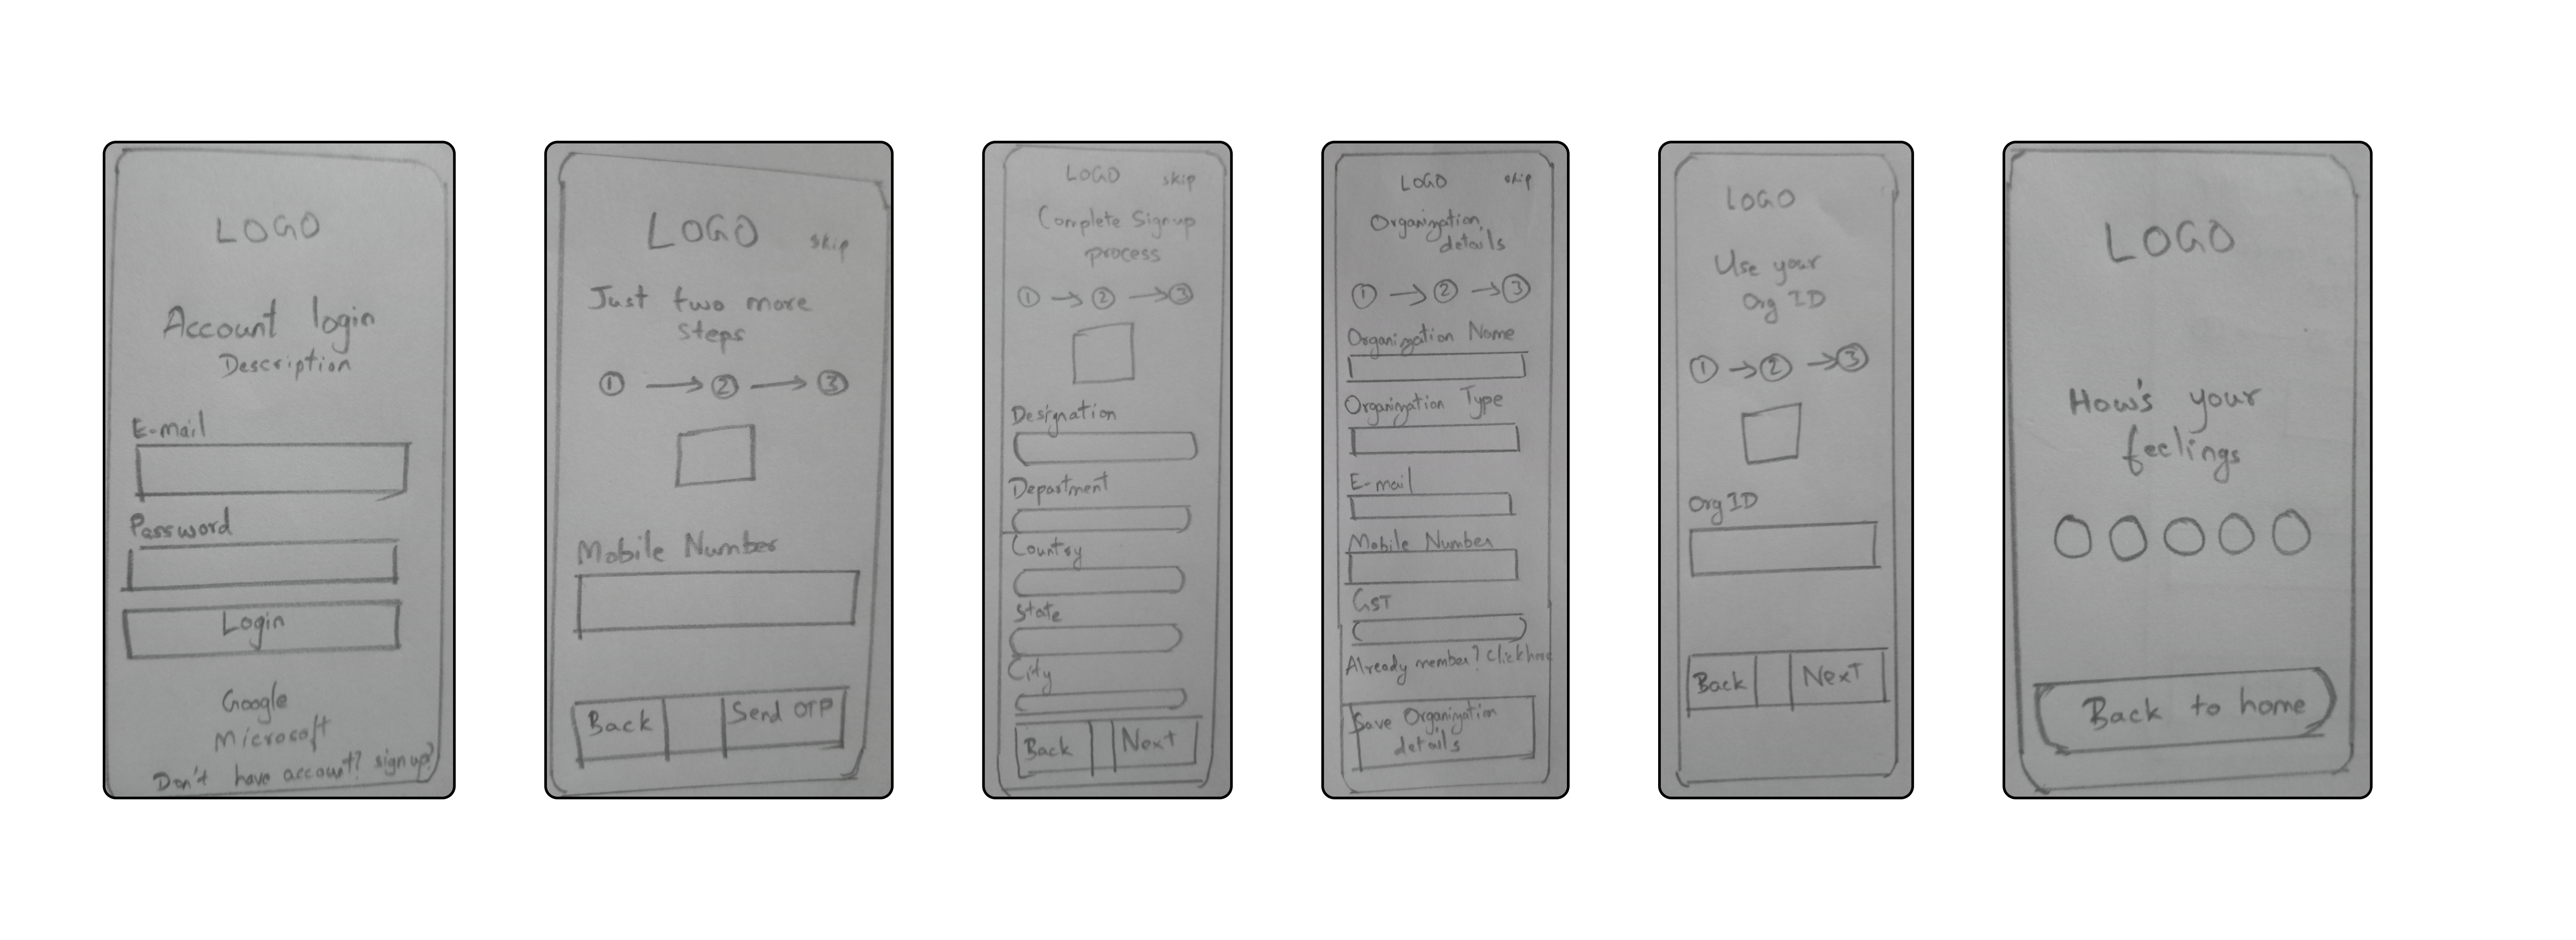 LOGO
Account login
Description
E-mail
Password
Login
Google
Microsoft
Don't have account? sign up?
LOGO
skip
Just two more
steps
1 → 2 → 3
Mobile Number
Back
Send OTP
LOGO
skip
Complete Signup
process
1 → 2 → 3
Designation
Department
Country
State
City
Back
Next
LOGO
skip
Organization
details
1 → 2 → 3
Organization Name
Organization Type
E-mail
Mobile Number
GST
Already member? Click here
Save Organization
details
LOGO
Use your
Org ID
1 → 2 → 3
Org ID
Back
Next
LOGO
How's your
feelings
Back to home